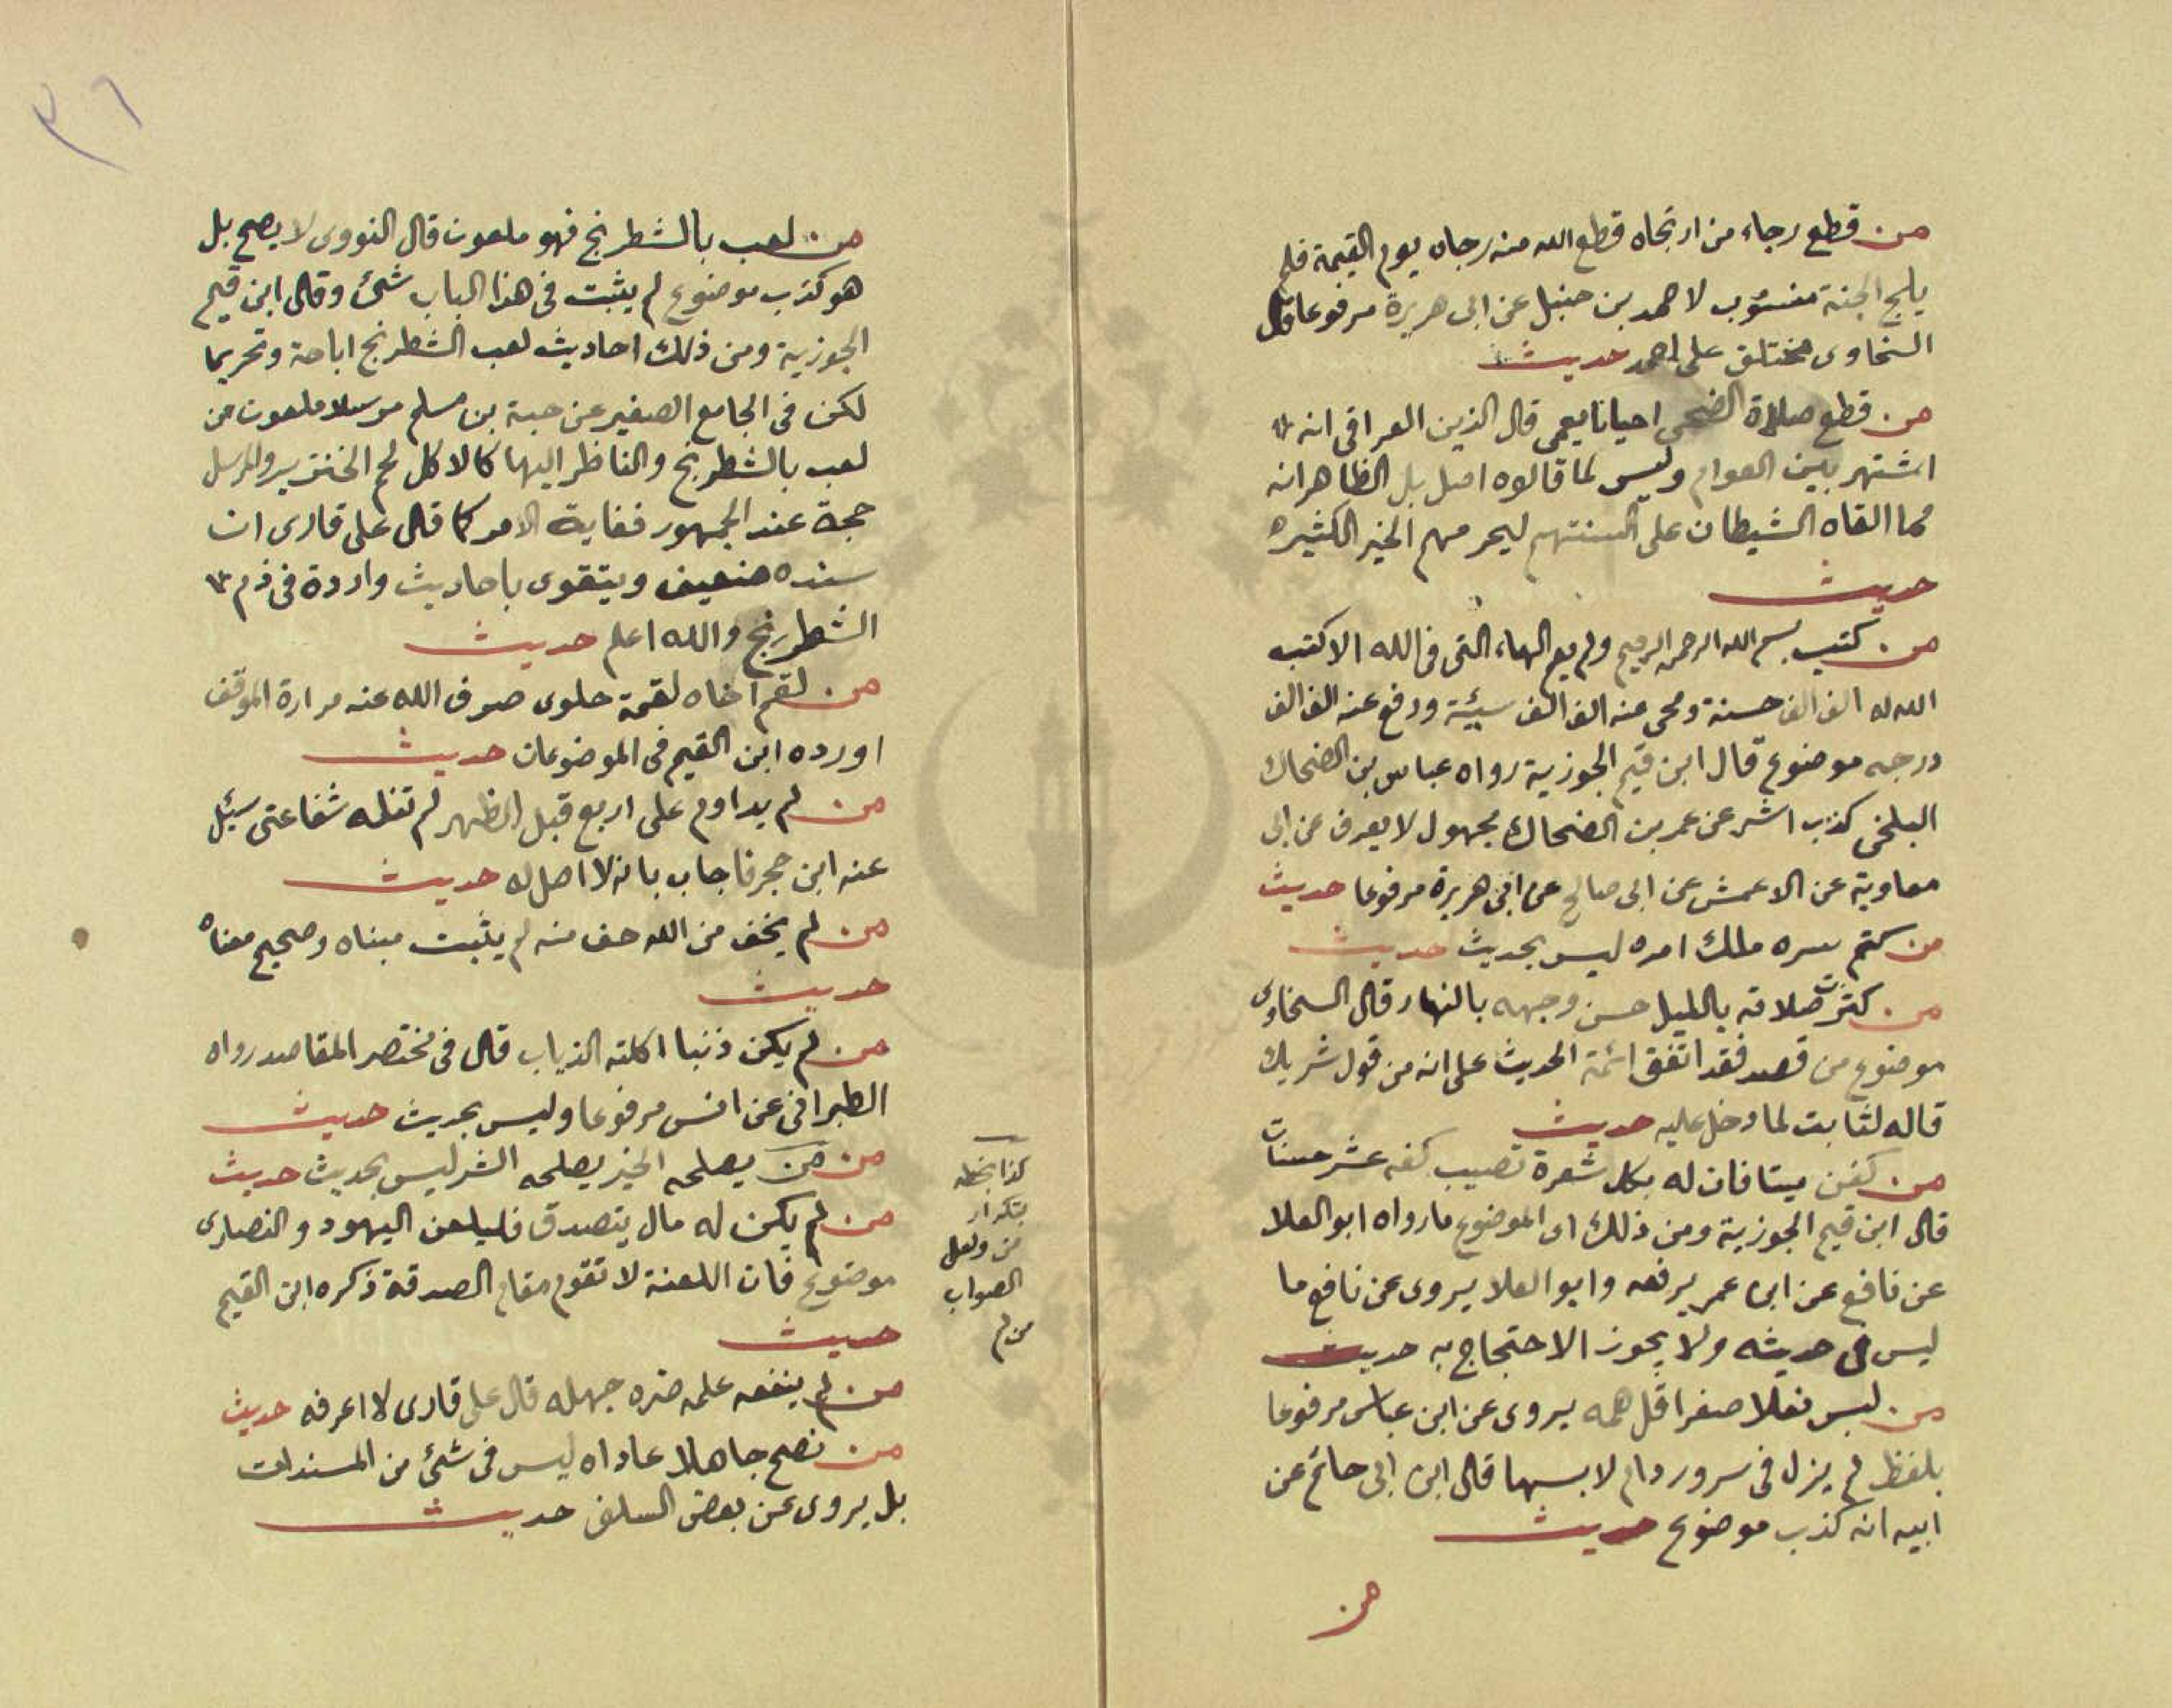 من قطع رجاء من ارتجاه قطع الله منه رجاه يوم القيمة فلم
يلج الجنة منسوب لاحمد بن حنبل عن ابى هريرة مرفوعا قال
السخاوى مختلق على احمد حديث
من قطع صلاة الضحى احيانا يعمى قال الزين العراقى انه
اشتهر بين العوام وليس لما قالوه اصل بل الظاهر انه
مما القاه الشيطان على السنتهم ليحرمهم الخير الكثير
حديث
من كتب بسم الله الرحمن الرحيم ولم يع الهاء التى فى الله الا كتب
الله له الف الف حسنة ومحى عنه الف الف سيئة ورفع عنه الف الف
درجه موضوع قال ابن قيم الجوزية رواه عباس بن الضحاك
البلخى كذب اشر عن عمر بن الضحاك مجهول لا يعرف عن ابى
معاوية عن الاعمش عن ابى صالح عن ابى هريرة مرفوعا حديث
من كتم سره ملك امره ليس بحديث حديث
من كثرت صلاته بالليل حسن وجهه بالنهار قال السخاوى
موضوع من قصد فقد اتفق ائمة الحديث على انه من قول شريك
قاله لثابت لما دخل عليه حديث
من كفن ميتا فان له بكل شعرة تصيب كفنه عشر حسنات
قال ابن قيم الجوزية ومن ذلك اى الموضوع ما رواه ابو العلا
عن نافع عن ابن عمر يرفعه وابو العلا يروى عن نافع ما
ليس فى حديثه ولا يجوز الاحتجاج به حديث
من لبس نعلا صفرا قل همه يروى عن ابن عباس مرفوعا
بلفظ لم يزل فى سرور دام لابسها قال ابن ابى حاتم عن
ابيه انه كذب موضوع حديث
من
٣٦
من لعب بالشطرنج فهو ملعون قال النووى لا يصح بل
هو كذب موضوع لم يثبت فى هذا الباب شئ وقال ابن قيم
الجوزية ومن ذلك احاديث لعب الشطرنج اباحة وتحريما
لكن فى الجامع الصغير عن حبة بن مسلم مرسلا ملعون من
لعب بالشطرنج والناظر اليها كالاكل لحم الخنزير والمرسل
حجة عند الجمهور فغاية الامر كما قال على قارى ان
سنده ضعيف ويتقوى باحاديث واردة فى ذم
الشطرنج والله اعلم حديث
من لقم اخاه لقمة حلوى صرف الله عنه مرارة الموقف
اورده ابن القيم فى الموضوعات حديث
من لم يداوم على اربع قبل الظهر لم تنله شفاعتى سئل
عنه ابن حجر فاجاب بانه لا اصل له حديث
من لم يخف من الله خف منه لم يثبت مبناه وصحيح معناه
حديث
من لم يكن ذئبا اكلته الذياب قال فى مختصر المقاصد رواه
الطبرانى عن انس مرفوعا وليس بحديث حديث
من من يصلحه الخير يصلحه الشر ليس بحديث حديث
من لم يكن له مال يتصدق فليلعن اليهود والنصارى
موضوع فان اللعنة لا تقوم مقام الصدقة ذكره ابن القيم
حديث
من لم ينفعه علمه ضره جهله قال على قارى لا اعرفه حديث
من نصح جاهلا عاداه ليس فى شئ من المسندات
بل يروى عن بعض السلف حديث
كذا بخطه
بتكرار
من ولعل
الصواب
من لم